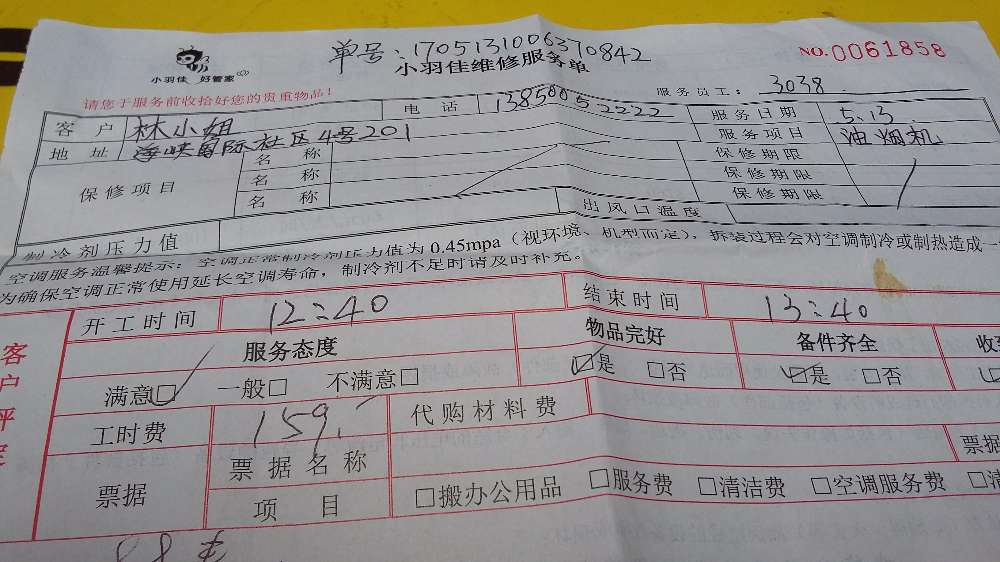 单号:1705131006370842
NO.0061858
小羽佳 好管家
小羽佳维修服务单
服务员工: 3038
请您于服务前收拾好您的贵重物品!
客户 林小姐 电话 13850052222 服务日期 5.13
地址 海峡国际社区4号201 服务项目 油烟机
保修项目 名称 保修期限
名称 保修期限
名称 保修期限
制冷剂压力值 出风口温度
空调服务温馨提示:空调正常制冷剂压力值为0.45mpa(视环境、机型而定),拆装过程会对空调制冷或制热造成一
为确保空调正常使用延长空调寿命,制冷剂不足时请及时补充。
客户评定
开工时间 12:40 结束时间 13:40
服务态度 物品完好 备件齐全 收
满意☑ 一般□ 不满意□ ☑是 □否 ☑是 □否
工时费 159. 代购材料费
票据 票据名称 票据
项目 □搬办公用品 □服务费 □清洁费 □空调服务费 □清